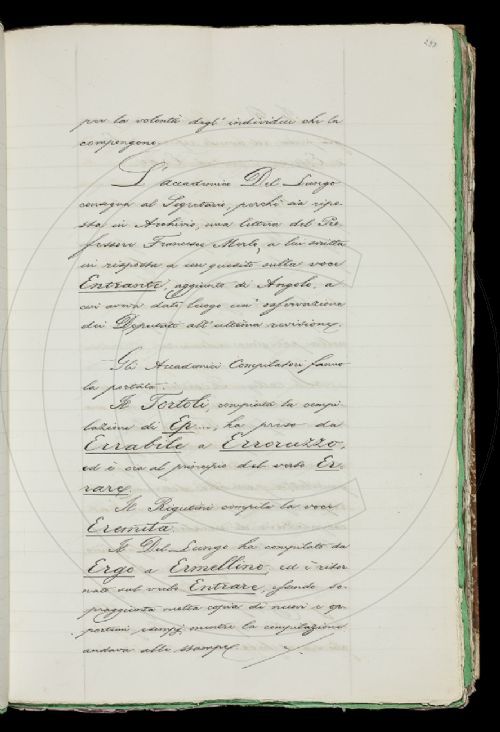 per la volontà degl' individui che la
compongono.
L'Accademico Del Lungo
consegna al Segretario, perchè sia ripo-
sta in Archivio, una lettera del Pro-
fessore Francesco Merlo, a lui scritta
in risposta a un quesito sulla voce
Entrante, aggiunto di Angolo, a
cui aveva dato luogo un' osservazione
dei Deputati all' ultima revisione.
Gli Accademici Compilatori fanno
la portata.
Il Tortoli, compiuta la compi-
lazione di Ep..., ha preso da
Errabile a Erroruzzo,
ed è ora al principio del verbo Er-
rare.
Il Rigutini compila la voce
Eremita.
Il Del Lungo ha compilato da
Ergo a Ermellino, ed è ritor-
nato sul verbo Entrare, essendo so-
praggiunta molta copia di nuovi e op-
portuni esempj, mentre la compilazione
andava alle stampe.